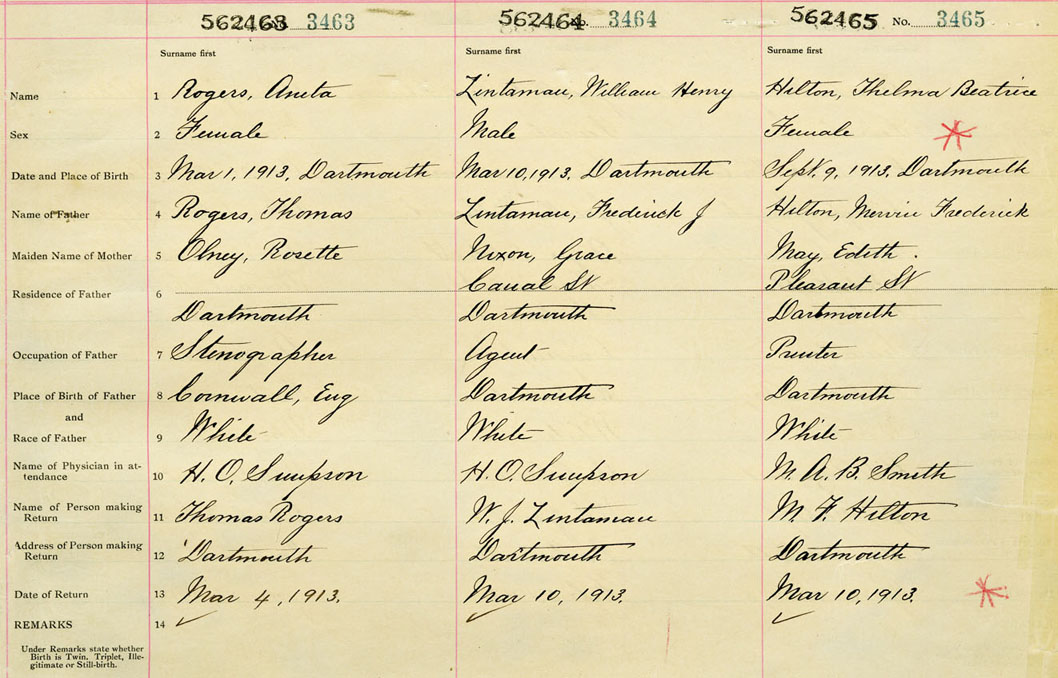 562463 No. 3463 562464 No. 3464 562465 No. 3465
Surname first Surname first Surname first
Name 1 Rogers, Anita Zintamau, William Henry Hilton, Thelma Beatrice
Sex 2 Female Male Female
Date and Place of Birth 3 Mar 1, 1913, Dartmouth Mar 10, 1913, Dartmouth Sept. 9, 1913, Dartmouth
Name of Father 4 Rogers, Thomas Zintamau, Frederick J Hilton, Frederick
Maiden Name of Mother 5 Olney, Rosette Nixon, Grace May, Edith.
Canal St Pleasant St
Residence of Father 6
Dartmouth Dartmouth Dartmouth
Occupation of Father 7 Stenographer Agent Printer
Place of Birth of Father 8 Cornwall, Eng Dartmouth Dartmouth
and
Race of Father 9 White White White
Name of Physician in at-
tendance 10 H. O. Simpson H. O. Simpson M. A. B. Smith
Name of Person making
Return 11 Thomas Rogers W. J. Zintamau M. F. Hilton
Address of Person making
Return 12 Dartmouth Dartmouth Dartmouth
Date of Return 13 Mar 4, 1913. Mar 10, 1913. Mar 10, 1913.
REMARKS 14
Under Remarks state whether
Birth is Twin, Triplet, Ille-
gitimate or Still-birth.